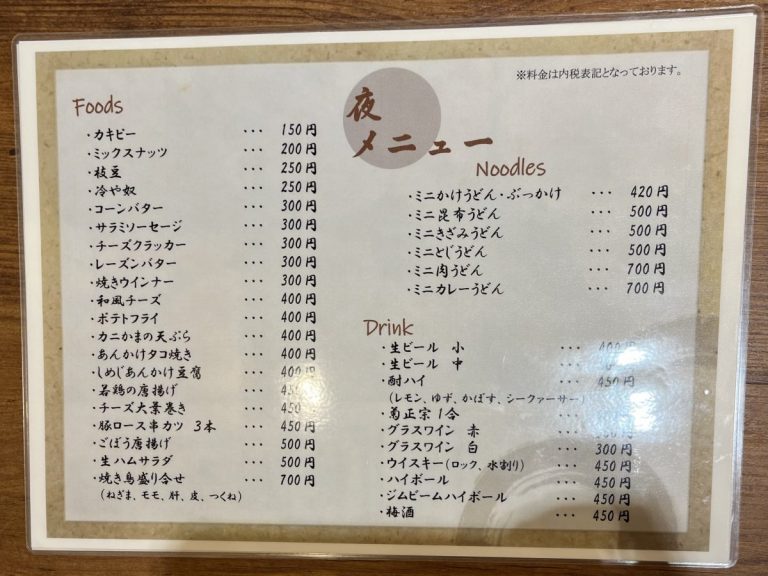 ※料金は内税表記となっております。
夜
メニュー
Foods
・カキピー ・・・ 150円
・ミックスナッツ ・・・ 200円
・枝豆 ・・・ 250円
・冷や奴 ・・・ 250円
・コーンバター ・・・ 300円
・サラミソーセージ ・・・ 300円
・チーズクラッカー ・・・ 300円
・レーズンバター ・・・ 300円
・焼きウインナー ・・・ 300円
・和風チーズ ・・・ 400円
・ポテトフライ ・・・ 400円
・カニかまの天ぷら ・・・ 400円
・あんかけタコ焼き ・・・ 400円
・しめじあんかけ豆腐 ・・・ 400円
・若鶏の唐揚げ ・・・
・チーズ大葉巻き ・・・ 450
・豚ロース串カツ 3本 ・・・ 450円
・ごぼう唐揚げ ・・・ 500円
・生ハムサラダ ・・・ 500円
・焼き鳥盛り合せ ・・・ 700円
(ねぎま、モモ、肝、皮、つくね)
Noodles
・ミニかけうどん・ぶっかけ ・・・ 420円
・ミニ昆布うどん ・・・ 500円
・ミニきざみうどん ・・・ 500円
・ミニとじうどん ・・・ 500円
・ミニ肉うどん ・・・ 700円
・ミニカレーうどん ・・・ 700円
Drink
・生ビール 小 ・・・ 400円
・生ビール 中 ・・・
・酎ハイ ・・・ 450円
(レモン、ゆず、かぼす、シークァーサー)
・菊正宗1合 ・・・
・グラスワイン 赤 ・・・
・グラスワイン 白 ・・・ 300円
・ウイスキー(ロック、水割り) ・・・ 450円
・ハイボール ・・・ 450円
・ジムビームハイボール ・・・ 450円
・梅酒 ・・・ 450円